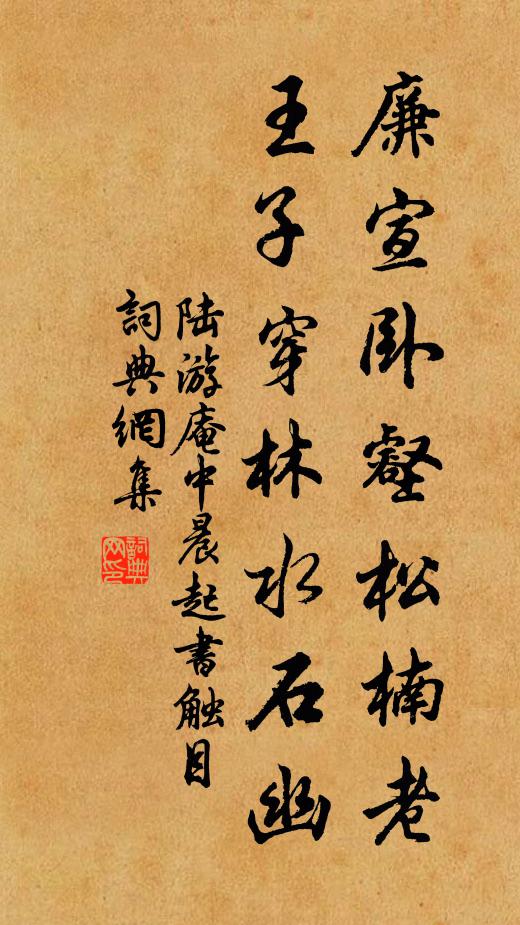 廉宣卧壑松楠老
王子穿林水石幽
陆游庵中晨起書触目
詞典網集
詞典网印